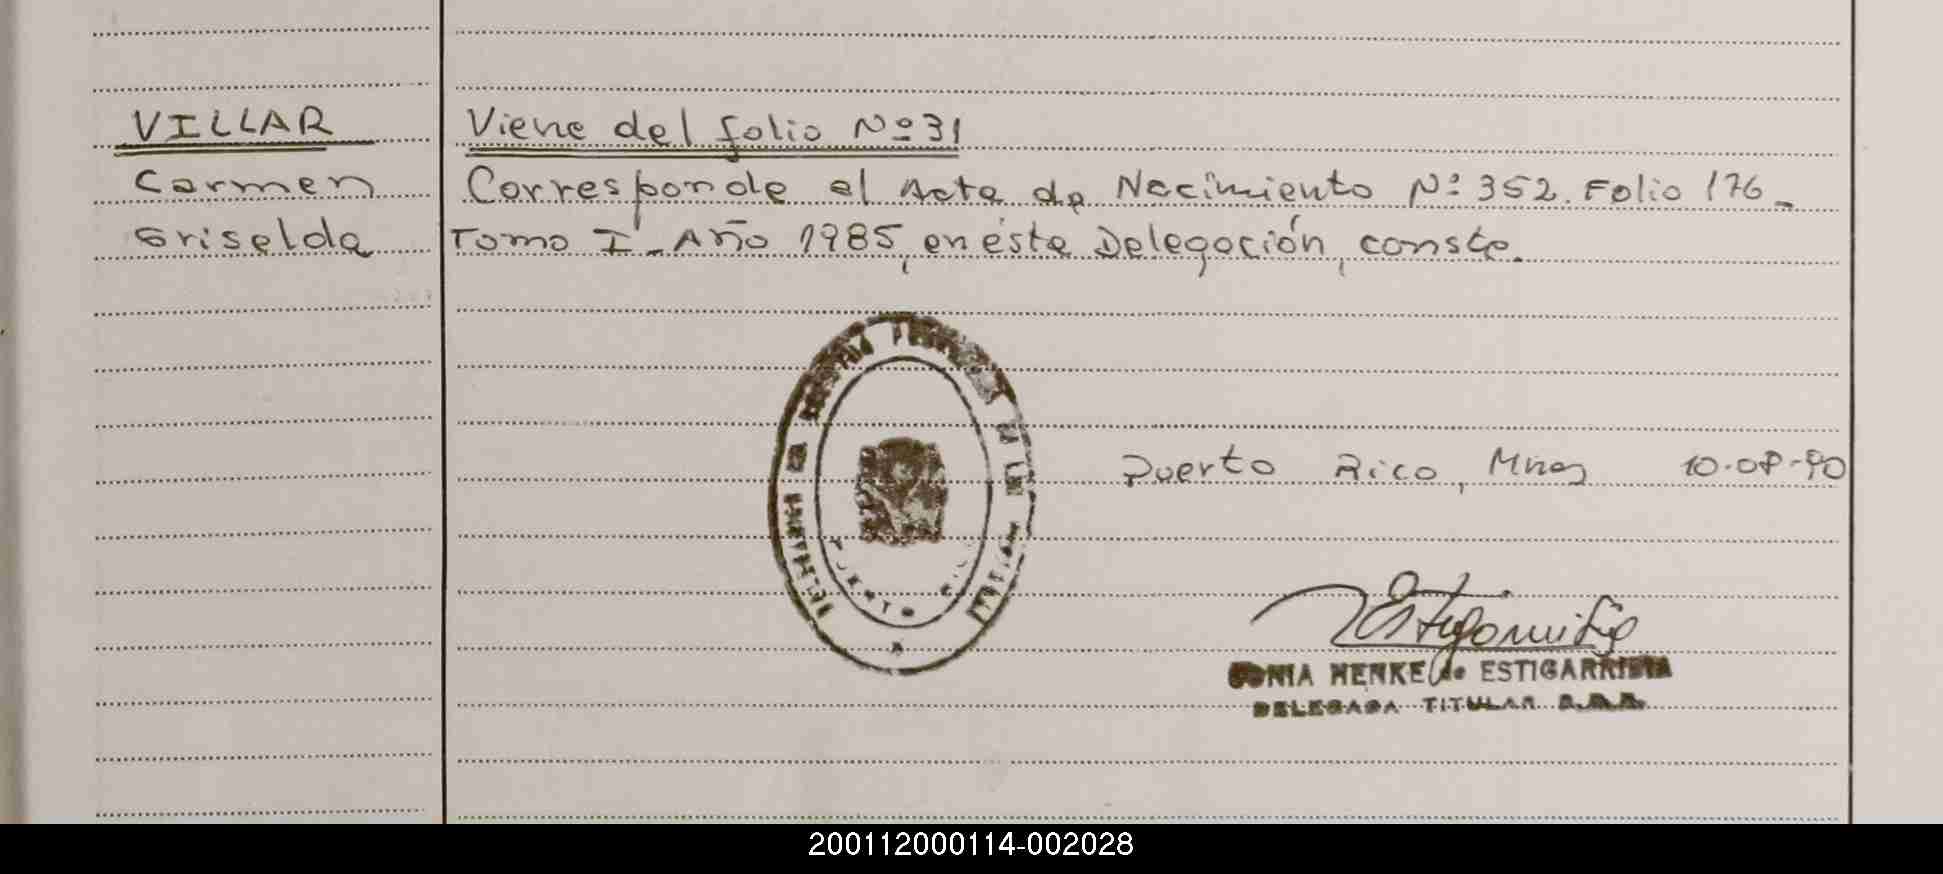 VILLAR
Carmen
Griselda
Viene del folio Nº 31
Corresponde al Acta de Nacimiento Nº 352. Folio 176_
Tomo I_ Año 1985, en ésta Delegación, conste.
PUERTO
Puerto Rico, Mnes 10-08-90
SONIA HENKE de ESTIGARRIBIA
DELEGADA TITULAR
200112000114-002028